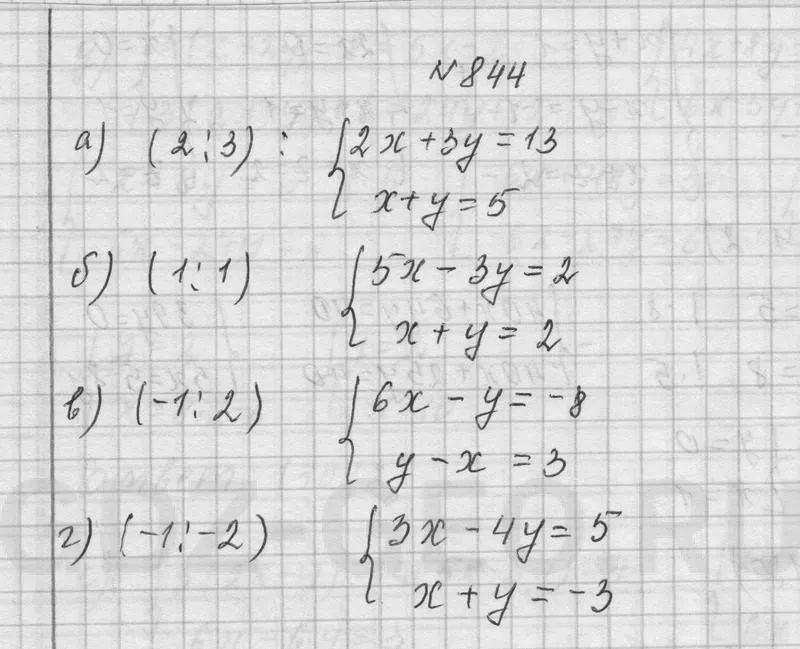 № 844
а) (2; 3) : { 2x + 3y = 13
x + y = 5
б) (1; 1) { 5x - 3y = 2
x + y = 2
в) (-1; 2) { 6x - y = -8
y - x = 3
г) (-1; -2) { 3x - 4y = 5
x + y = -3